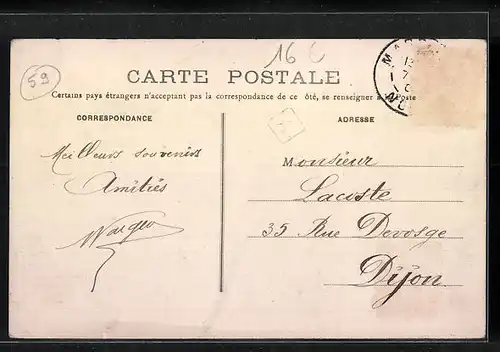 16 C
59
CARTE POSTALE
Certains pays étrangers n'acceptant pas la correspondance de ce ôté, se renseigner à la Poste
CORRESPONDANCE
ADRESSE
Meilleurs souvenirs
Amitiés
Monsieur
Lacoste
35 Rue Devosge
Dijon